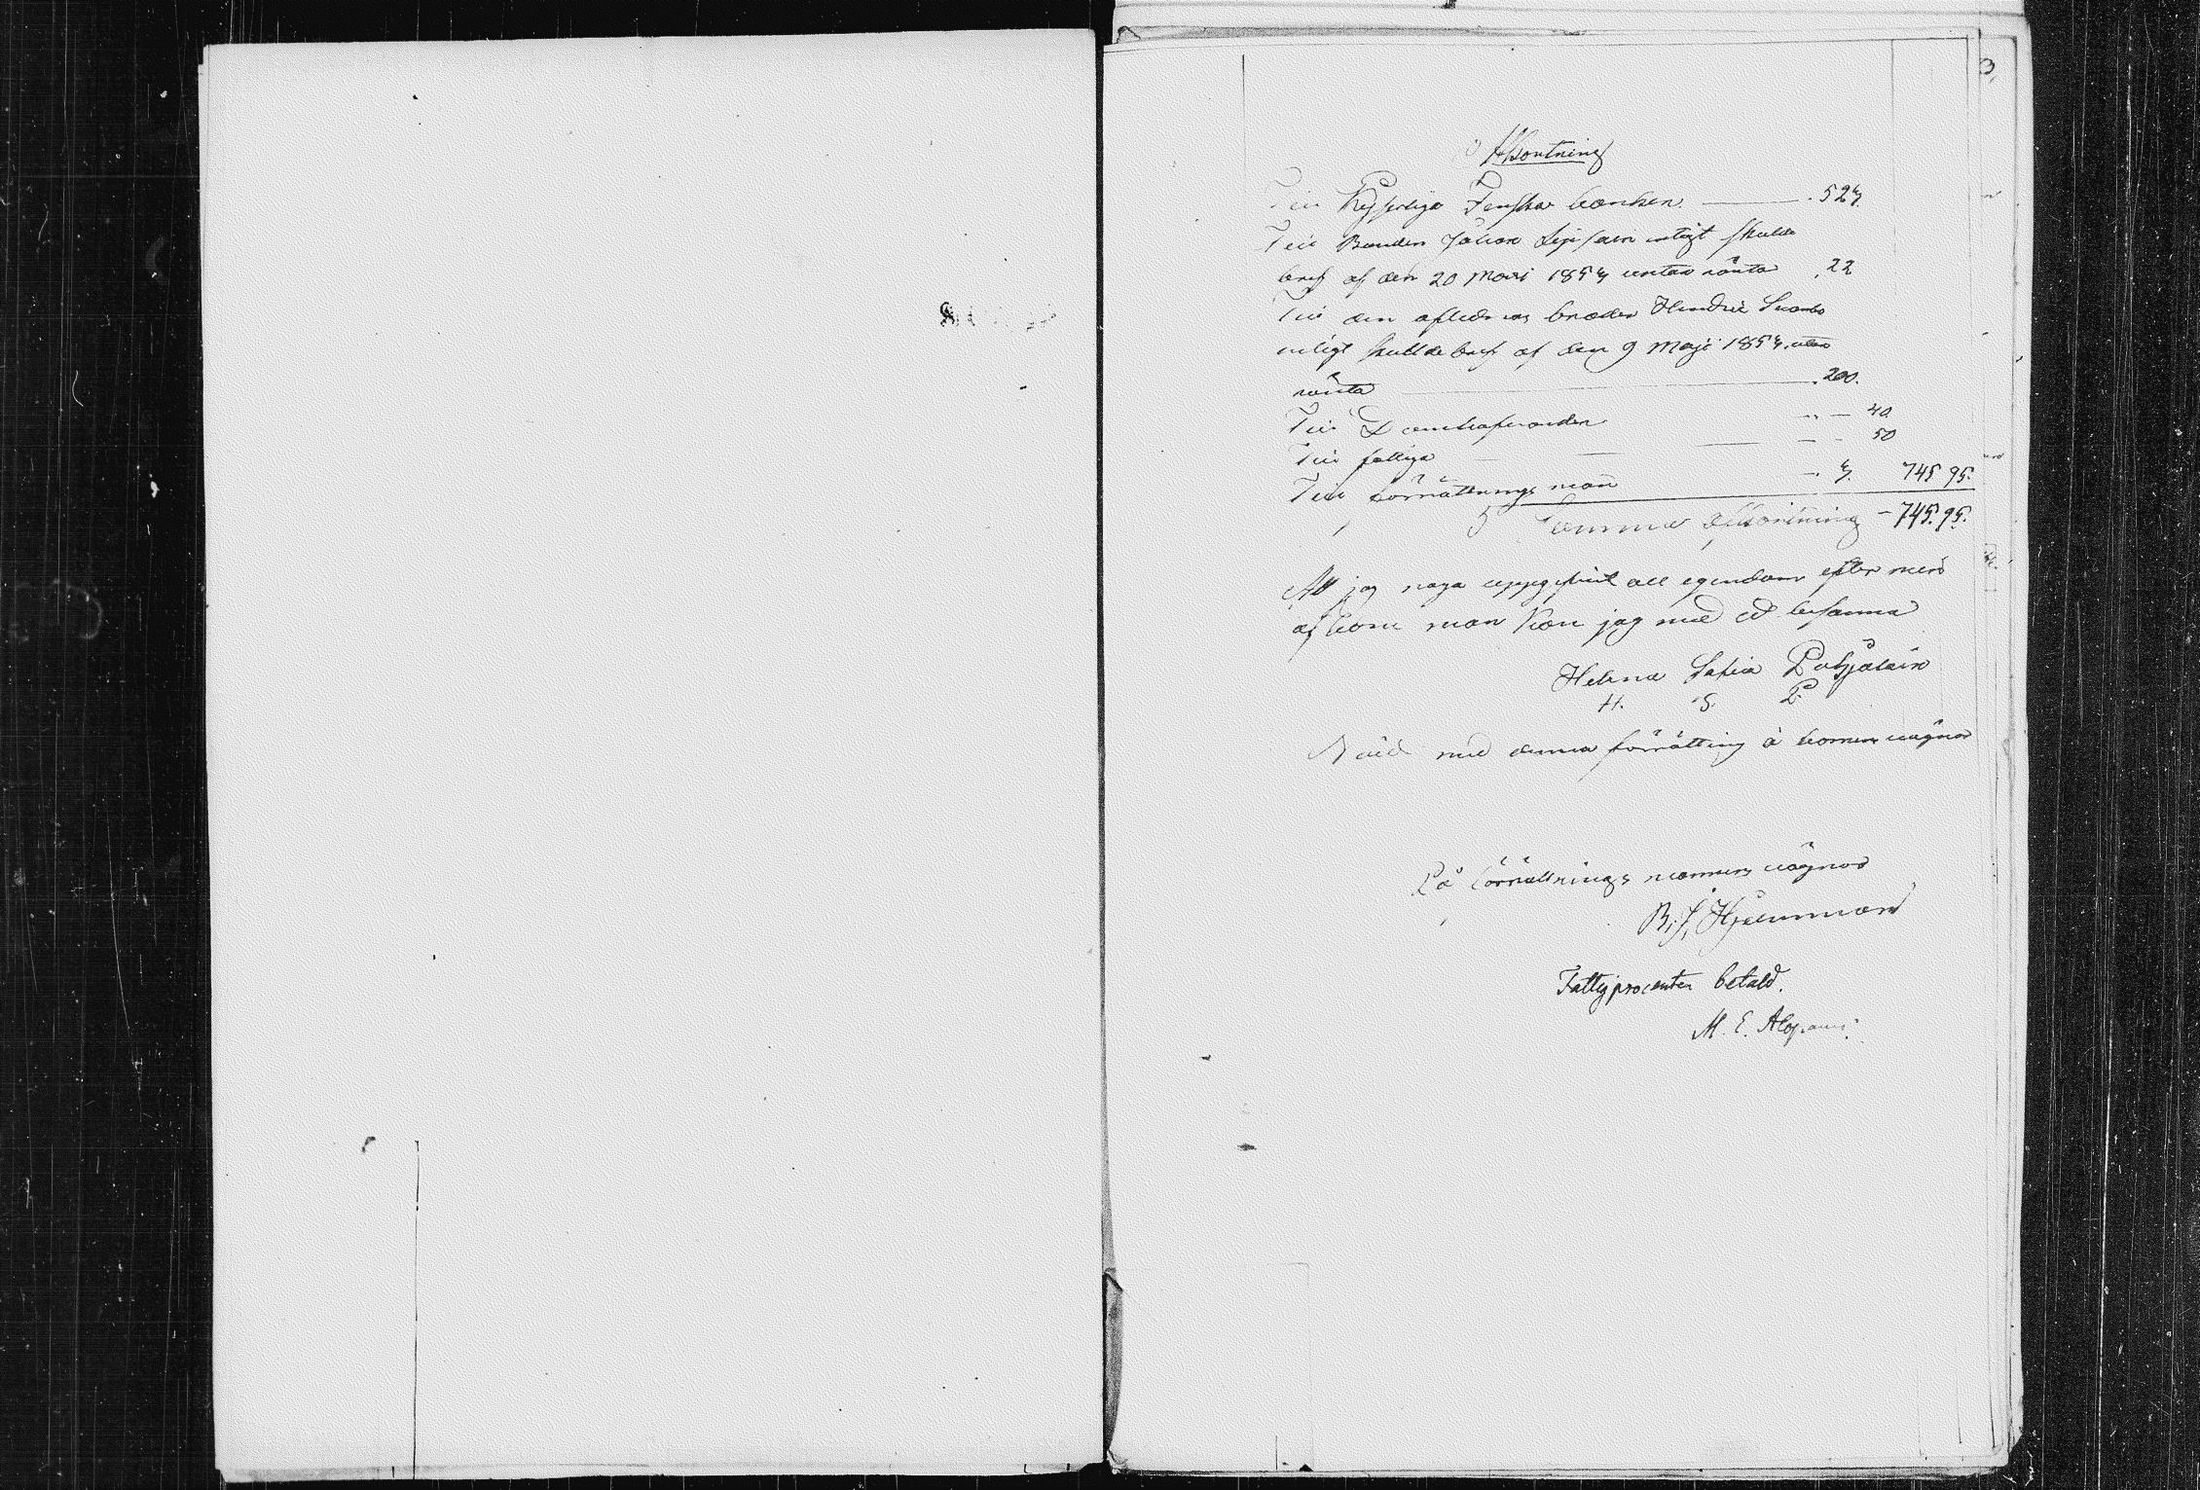 Afkortning
Till Kejserliga Finska banken — 524.
Till Bonden Johan enligt skulde
bref af den 20 Mars 1854 utan ränta 22
Till den aflednas broder Hendric
enligt skulldebref af den 9 Maji 1854 utan
ränta — 200.
Till — 40
Till fattiga — 50
Till förrättnings man — 745 95.
Summa afkortning — 745. 95.
Att jag noga uppgifvit all egendom efter min
man kan jag med ed besanna
Helena Sofia
H. S. P.
Nöjd med denna förrättning å wägnar
På förrättnings mannens wägnar
B. J. Hjelmman
Fattigprocenten betald.
M. E. Alopaeus